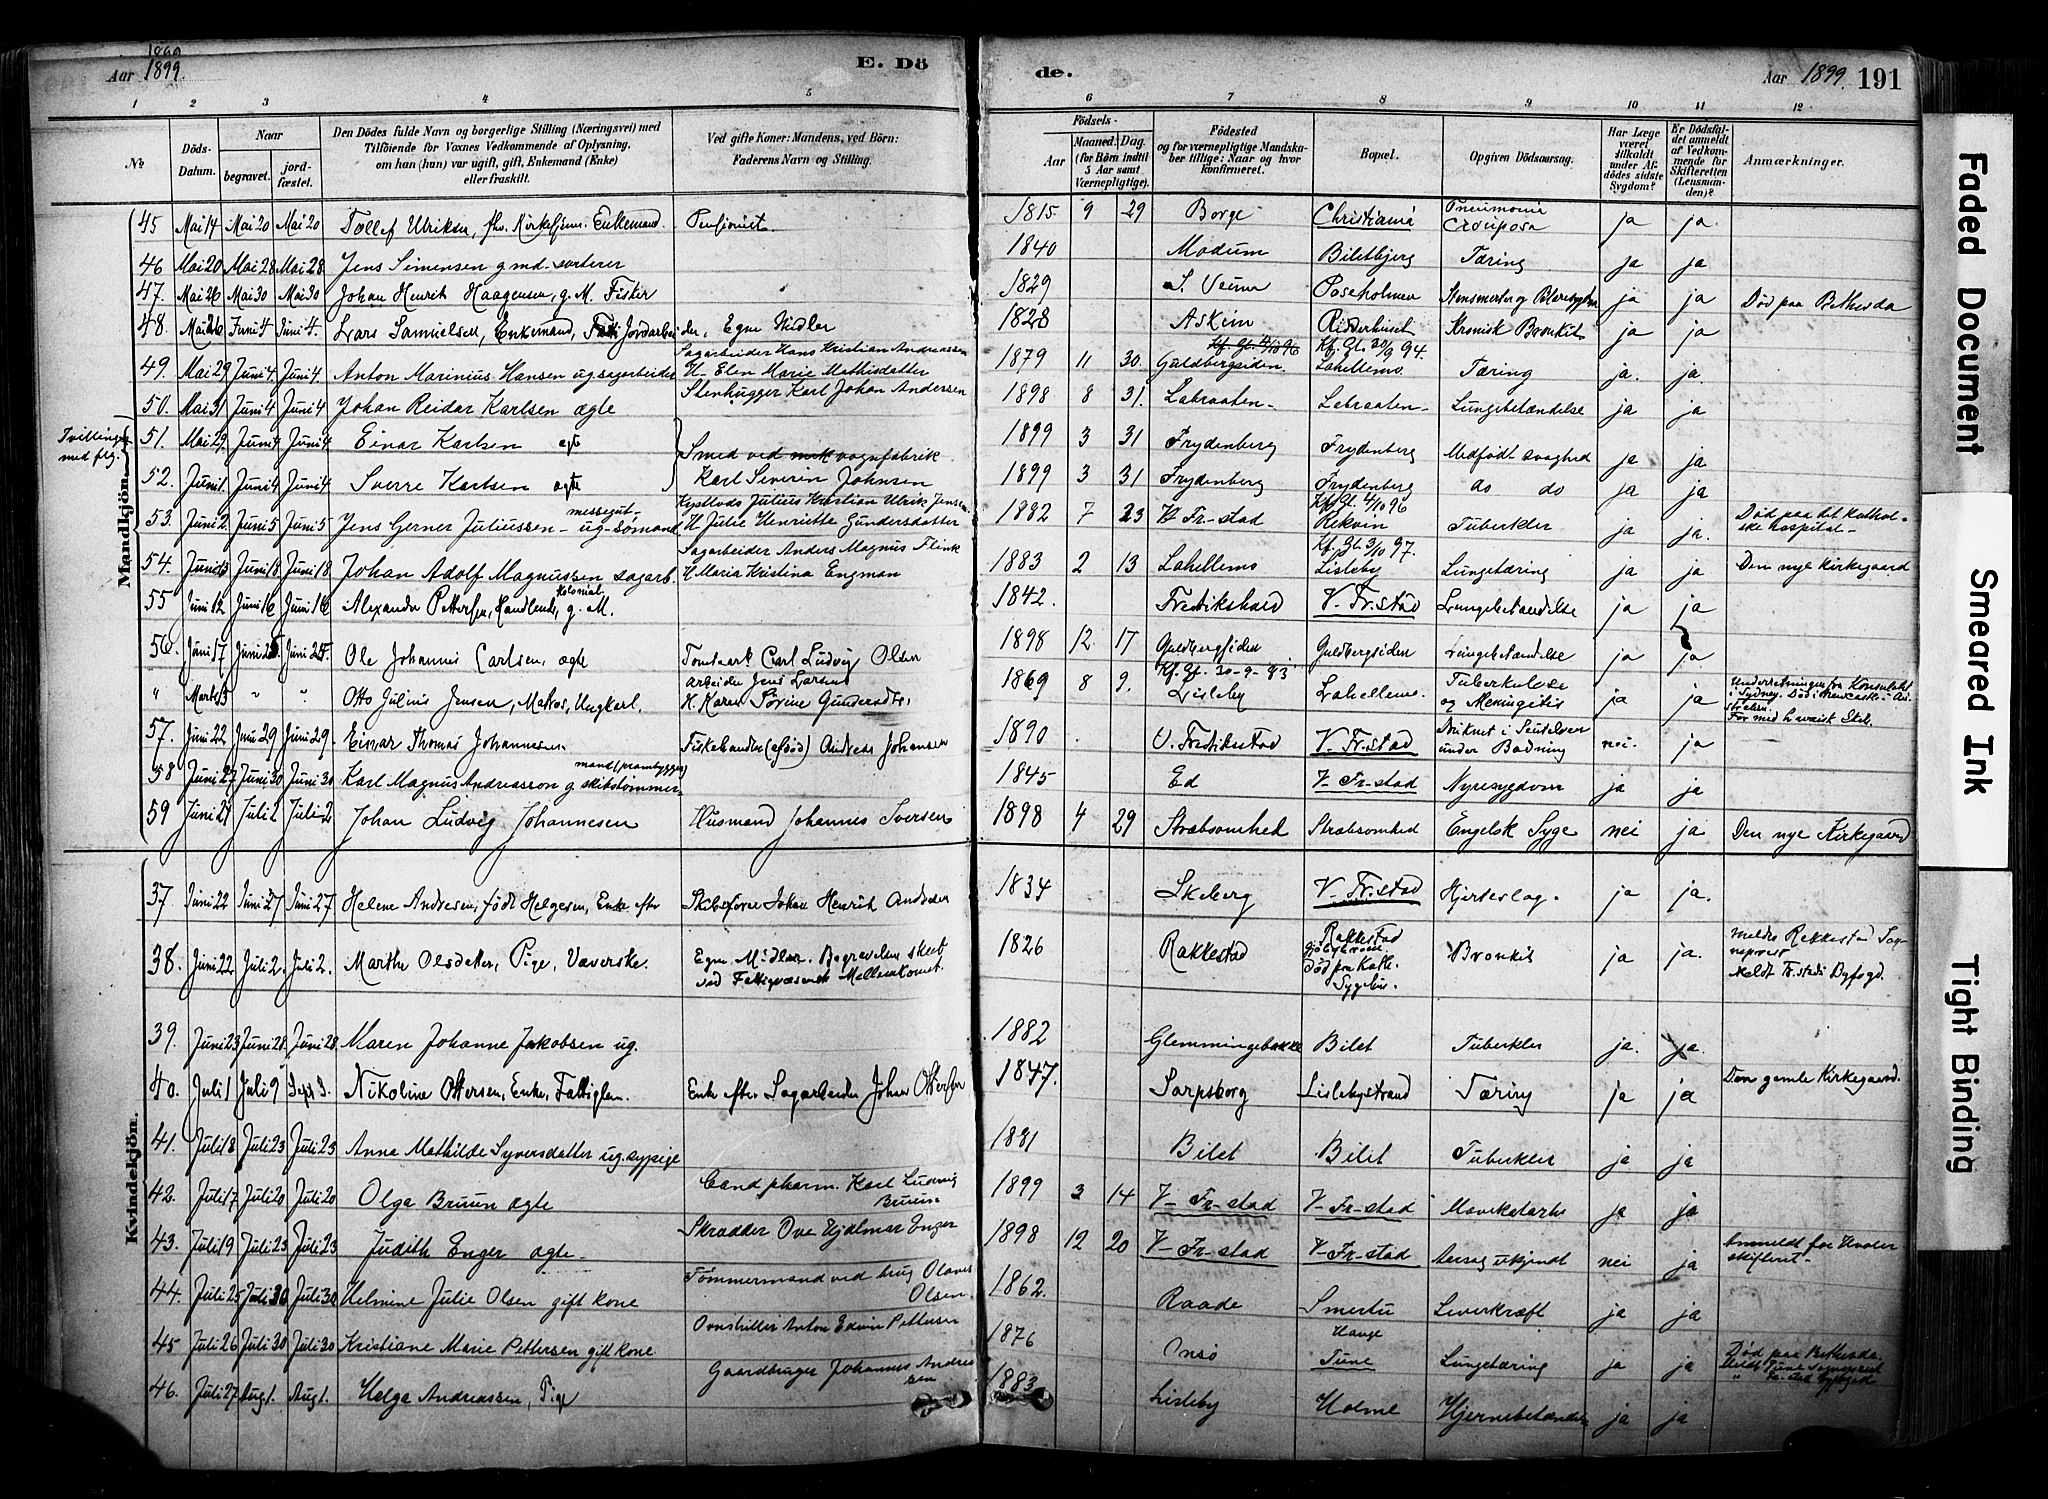 1899
Aar 1899.
E. Dö
de.
Aar 1899. 191
1 2 3 4 5 6 7 8 9 10 11 12
№
Döds-Datum.
Naar
begravet.
jord-fæstet.
Den Dödes fulde Navn og borgerlige Stilling (Næringsvei) med
Tilföiende for Voxnes Vedkommende af Oplysning,
om han (hun) var ugift, gift, Enkemand (Enke)
eller fraskilt.
Ved gifte Koner: Mandens, ved Börn:
Faderens Navn og Stilling.
Födsels-
Aar
Maaned. Dag.
(for Börn indtil
5 Aar samt
Værnepligtige).
Födested
og for værnepligtige Mandska-
ber tillige: Naar og hvor
konfirmeret.
Bopæl.
Opgiven Dödsaarsag.
Har Læge
været
tilkaldt
under Af-
dødes sidste
Sygdom?
Er Dödsfal-
det anmeldt
af Vedkom-
mende for
Skifteretten
(Lensman-
den)?
Anmærkninger.
Mandkjön.
45 Mai 14 Mai 20 Mai 20 Tollef Ulriksen, fhv. Enkemand. Pensionist. 1815 9 29 Borge Christiania Pneumonia Crouposa ja ja.
46 Mai 20 Mai 28 Mai 28 Jens Simensen g md. sorterer 1840 Modum Biletbjerg Tæring ja ja
47. Mai 26 Mai 30 Mai 30 Johan Henrik Haagensen, g. M. Fisker 1829 Pæreholmen ja ja Död paa Bethesda
48. Mai 26 Juni 4 Juni 4. Lars Samuelsen, Enkemand, Jordarbeider, Egne Midler 1828 Askim Ridderhuset Kronisk Bronkit ja ja
49. Mai 29 Juni 4. Juni 4. Anton Marinius Hansen ug sagarbeider Sagarbeider Hans Kristian Andreassen H- Elen Marie Mathisdatter 1879 11 30. Guldbergsiden. Kf. Gl. 30/9 94. Lahellemo. Tæring ja. ja.
50. Mai 31 Juni 4 Juni 4 Johan Reidar Karlsen ægte Stenhugger Karl Johan Andersen 1898 8 31. Labraaten- Labraaten- Lungebetændelse ja ja
Tvillinger
med flg.
51. Mai 29 Juni 4 Juni 4 Einar Karlsen ægte 1899 3 31 Frydenberg Frydenberg Medfödt svaghed ja ja
Smed ved vognfabrik
Karl Severin Johnsen
52. Juni 1. Juni 4 Juni 4 Sverre Karlsen ægte 1899 3 31 Frydenberg Frydenberg do do ja ja
53. Juni 2. Juni 5 Juni 5 Jens Gerner Juliussen- messegut- ug- sömand Julius Kristian Ulrik Jensen H Julie Henriette Gundersdatter 1882 7 23 Fr-stad Kf. Gl. 4/10 96 Rekvin Tuberkler ja ja. Död paa det katholske hospital-
54. Juni 13 Juni 18 Juni 18 Johan Adolf Magnussen sagarb. Sagarbeider Anders Magnus Flink H Maria Kristina Engman 1883 2 13 Lahellemo Kf. Gl. 3/10 97. Lisleby Lungetæring ja ja Den nye Kirkegaard
55 Juni 12 Juni 16 Juni 16 Alexander Pettersen, Kolonial Handlende, g. M. 1842. Fredrikshald V. Fr.stad Lungebetændelse ja ja
56. Juni 17 Juni 25 Juni 25. Ole Johannes Carlsen, ægte Tomtearb. Carl Ludvig Olsen 1898 12 17 Guldbergsiden Guldbergsiden Lungebetændelse ja ja
" Marts 3 " " Otto Julius Jensen, Matros, Ungkarl. Arbeider Jens Larsen H. Karen Sörine Gundersdtr. 1869 8 9. Kf. Gl. 30-9-83 Lisleby Lahellemo. Tuberkulose og Meningitis ja ja Underretningen fra Konsulatet i Sydney. Död i Newcastle i Australien.
57. Juni 22 Juni 29 Juni 29. Einar Thomas Johannesen Fiskehandler (afdöd) Andreas Johansen 1890 V. Fredriksstad V. Fr.stad Druknet i Seutelven under Badning nei. ja
58 Juni 27 Juni 30 Juni 30 Karl Magnus Andreasson g skibstömmermand (prambygger) 1845 Ed V- Fr-stad Nyresygdom ja ja
59 Juni 27 Juli 2 Juli 2 Johan Ludvig Johannesen Husmand Johannes Iversen 1898 4 29 Stræbsomhed Stræbsomhed Engelsk Syge nei ja Den nye Kirkegaard
Kvindekjön.
37 Juni 22 Juni 27 Juni 27 Helene Andresen, födt Helgesen, Enke efter Skibsförer Johan Henrik Andresen 1834 Skeberg V- Fr.stad Hjerteslag. ja ja.
38. Juni 22 Juli 2. Juli 2. Marthe Olsdatter, Pige, Væverske. Egne Midler. Begravelsen skeet ved Fattigvæsenets Mellemkomst. 1826 Rakkestad Rakkestad Död paa Kath. Sygehus. Bronkit ja ja. Meldt Rekkestad Sogneprest Meldt Fr.stads Byfogd.
39. Juni 23 Juni 28. Juni 28 Maren Johanne Jakobsen ug. 1882 Glemmingebakke Bilet Tuberkler ja. ja.
40. Juli 1 Juli 9 Sept 3. Nikoline Ottersen, Enke, Fattiglem. Enke efter Sagarbeider Johan Ottersen 1847. Sarpsborg Lislebystrand Tæring ja ja Den gamle Kirkegaard.
41. Juli 18 Juli 23 Juli 23 Anna Mathilde Syversdatter ug. sypige 1881 Bilet Bilet Tuberkler ja ja
42. Juli 17 Juli 20 Juli 20 Olga Bruun ægte Cand pharm. Karl Ludvig Bruun 1899 3 14 V- Fr-stad V- Fr-stad Mavekatarrh ja ja
43. Juli 19 Juli 23 Juli 23 Judith Enger ægte- Skrædder Ove Hjalmar Enger 1898 12 20 V- Fr-stad V- Fr-stad Aarsag ukjendt nei ja Anmeldt for skifteret-
44. Juli 25 Juli 30 Juli 30 Helmine Julie Olsen gift kone Tömmermand ved brug Olaves Olsen. 1862. Raade Smertu Leverkræft ja ja
45 Juli 26 Juli 30 Juli 30 Kristiane Marie Pettersen gift kone Anton Edvin Pettersen 1876 Onsö Hauge Tune Lungetæring ja ja Död paa Bethesda. Meldt Tune Sogneprest " Fr.stad byfoged
46. Juli 27 Aug 1. Aug 1. Helga Andreassen, Pige Gaardbruger Johannes Andreassen 1883 Lisleby Holme Hjernebetændelse ja ja
Faded Document
Smeared Ink
Tight Binding